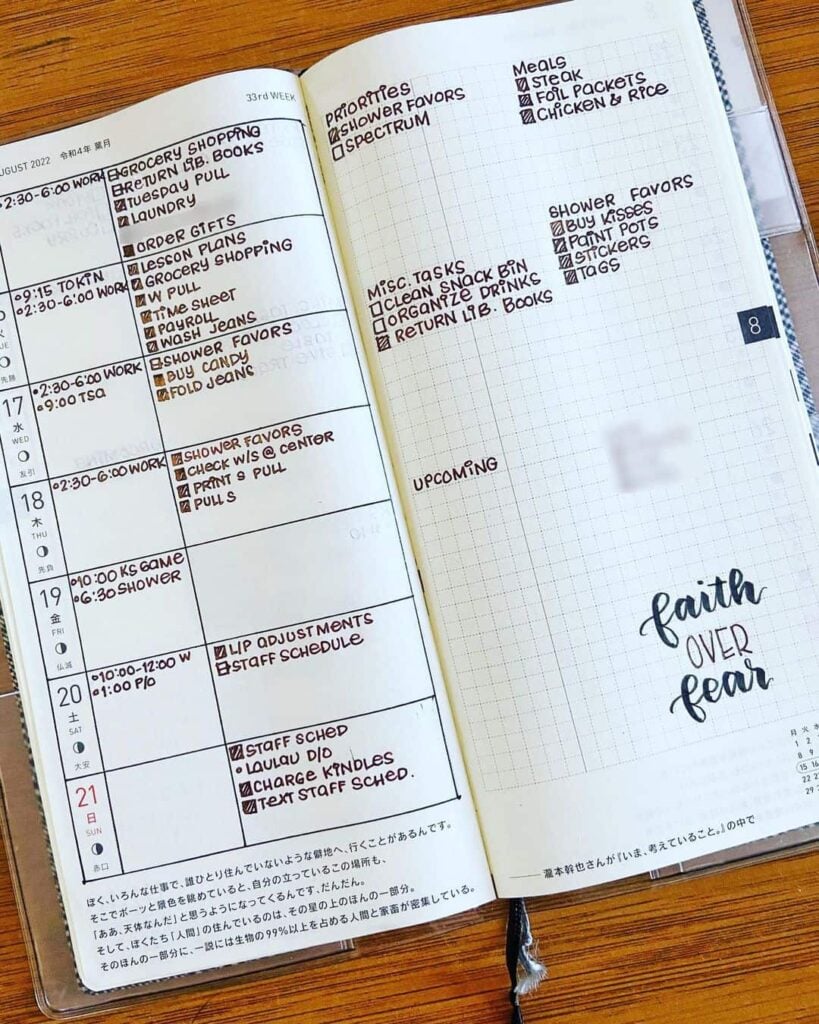 AUGUST 2022 令和4年 葉月
33rd WEEK
2:30-6:00 WORK
GROCERY SHOPPING
RETURN LIB. BOOKS
TUESDAY PULL
LAUNDRY
ORDER GIFTS
火
TUE
先勝
9:15 TOKIN
2:30-6:00 WORK
LESSON PLANS
GROCERY SHOPPING
W PULL
TIME SHEET
PAYROLL
WASH JEANS
17
水
WED
友引
2:30-6:00 WORK
9:00 TSA
SHOWER FAVORS
BUY CANDY
FOLD JEANS
18
木
THU
先負
2:30-6:00 WORK
SHOWER FAVORS
CHECK W/S @ CENTER
PRINT S PULL
PULL S
19
金
FRI
仏滅
10:00 KS GAME
6:30 SHOWER
20
土
SAT
大安
10:00-12:00 W
1:00 P/O
L/P ADJUSTMENTS
STAFF SCHEDULE
21
日
SUN
赤口
STAFF SCHED
LAULAU D/O
CHARGE KINDLES
TEXT STAFF SCHED.
ぼく、いろんな仕事で、誰ひとり住んでいないような僻地へ、行くことがあるんです。
そこでボーッと景色を眺めていると、自分の立っているこの場所も、
「ああ、天体なんだ」と思うようになってくるんです、だんだん。
そして、ぼくたち「人間」の住んでいるのは、その星の上のほんの一部分。
そのほんの一部分に、一説には生物の99%以上を占める人間と家畜が密集している。
PRIORITIES
SHOWER FAVORS
SPECTRUM
MEALS
STEAK
FOIL PACKETS
CHICKEN & RICE
SHOWER FAVORS
BUY KISSES
PAINT POTS
STICKERS
TAGS
MISC. TASKS
CLEAN SNACK BIN
ORGANIZE DRINKS
RETURN LIB. BOOKS
8
UPCOMING
faith
OVER
fear
月 火
1 2
8 9
15 16
22
29
——瀧本幹也さんが『いま、考えていること。』の中で